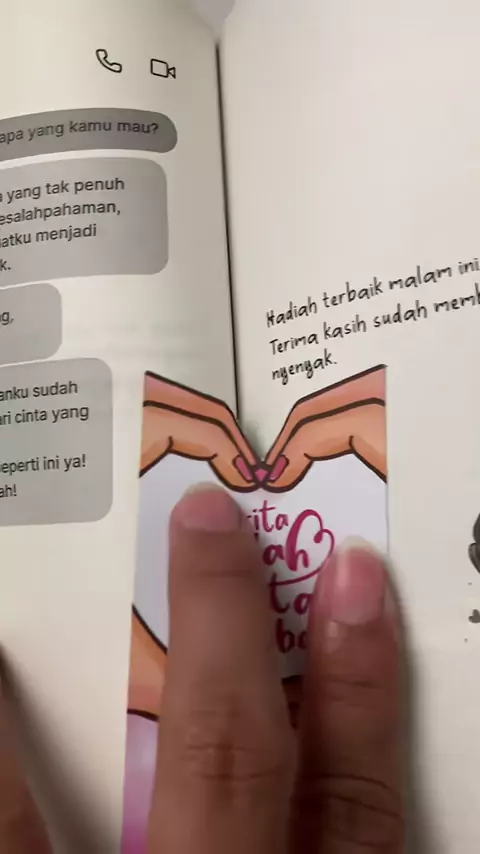 apa yang kamu mau?
yang tak penuh
esalahpahaman,
atku menjadi
k.
g,
anku sudah
ri cinta yang
eperti ini ya!
ah!
Hadiah terbaik malam ini
Terima kasih sudah memb
nyenyak.
ita
ah
ta